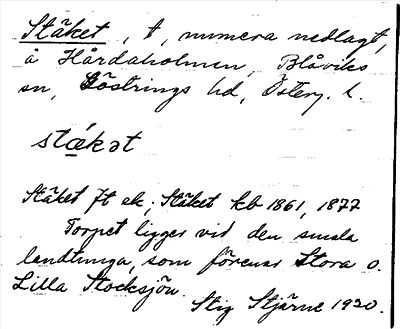 Stäket, t, numera nedlagt,
å Hårdaholmen, Blåviks
sn, Göstrings hd, Österg. l.
stä́kət
Stäket Jt ek; Stäket kb 1861, 1877
Torpet ligger vid den smala
landtunga, som förenar Stora o.
Lilla Stocksjön.
Stig Stjärne 1920.